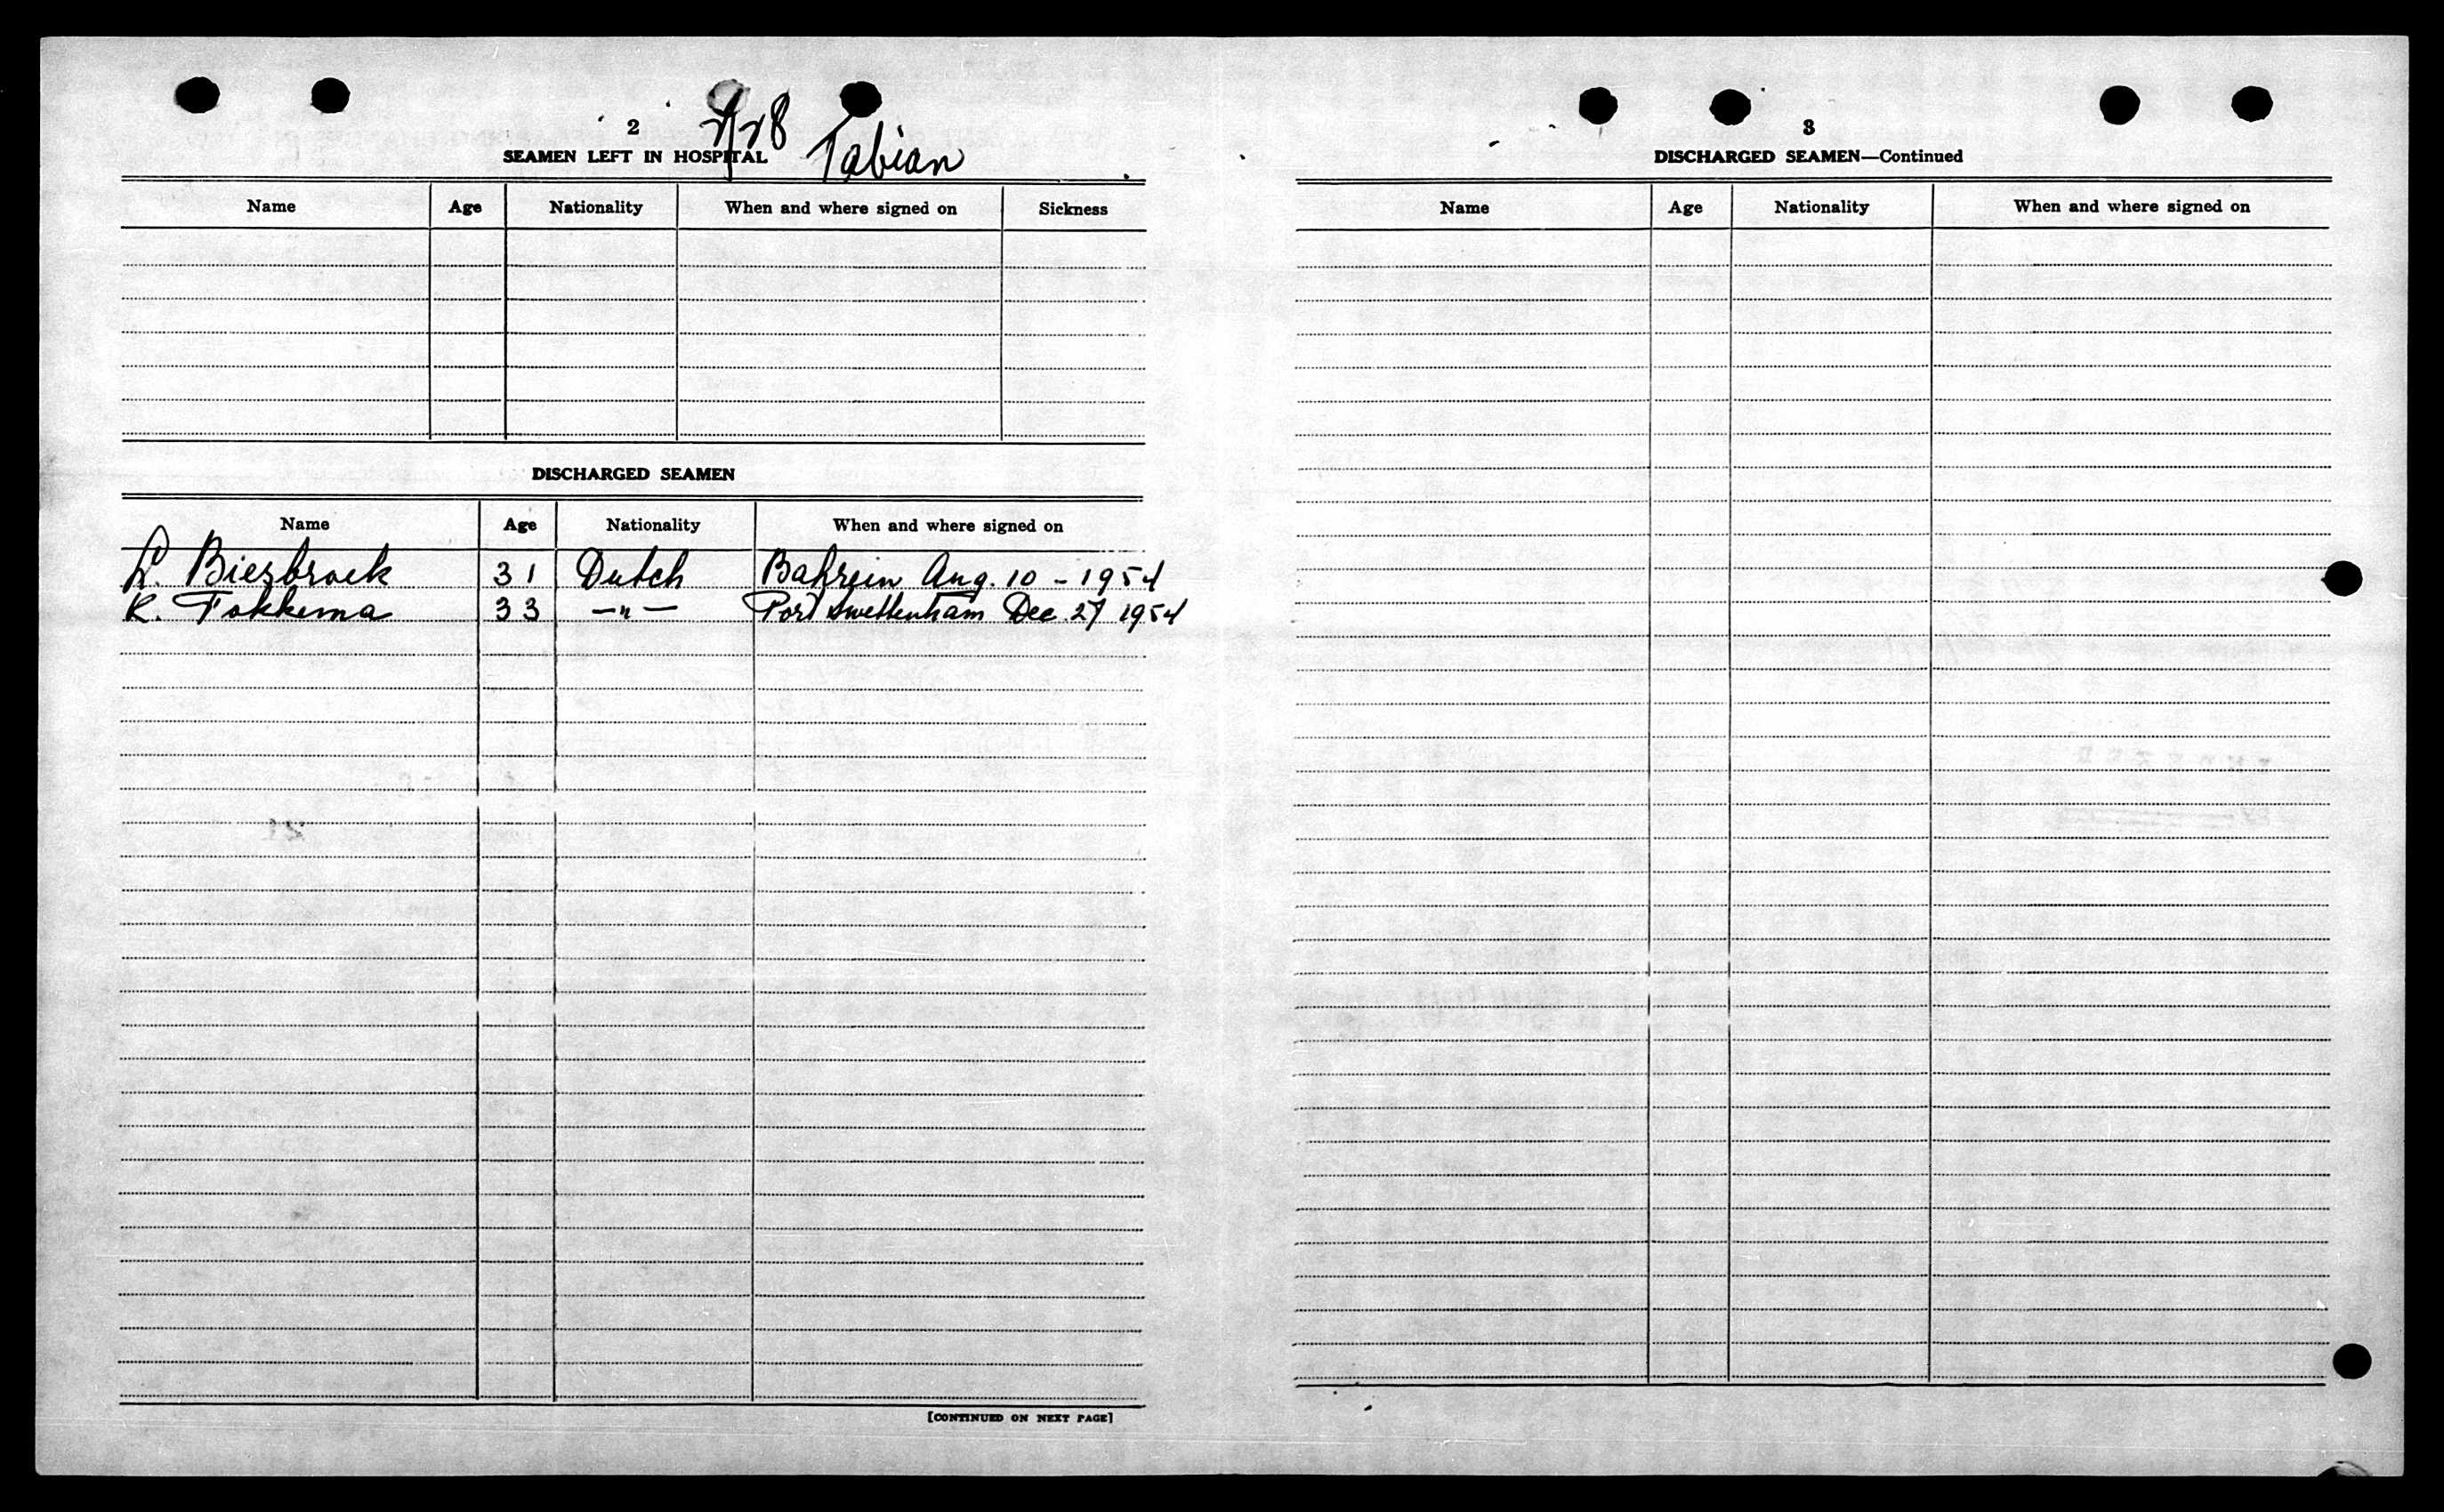 2
SEAMEN LEFT IN HOSPITAL
Tabian
Name Age Nationality When and where signed on Sickness
DISCHARGED SEAMEN
Name Age Nationality When and where signed on
L. Biesbrock 31 Dutch Bahrein Aug. 10 - 1954
R. Fokkema 33 —"— Port Swettenham Dec. 27 1954
[CONTINUED ON NEXT PAGE]
3
DISCHARGED SEAMEN—Continued
Name Age Nationality When and where signed on